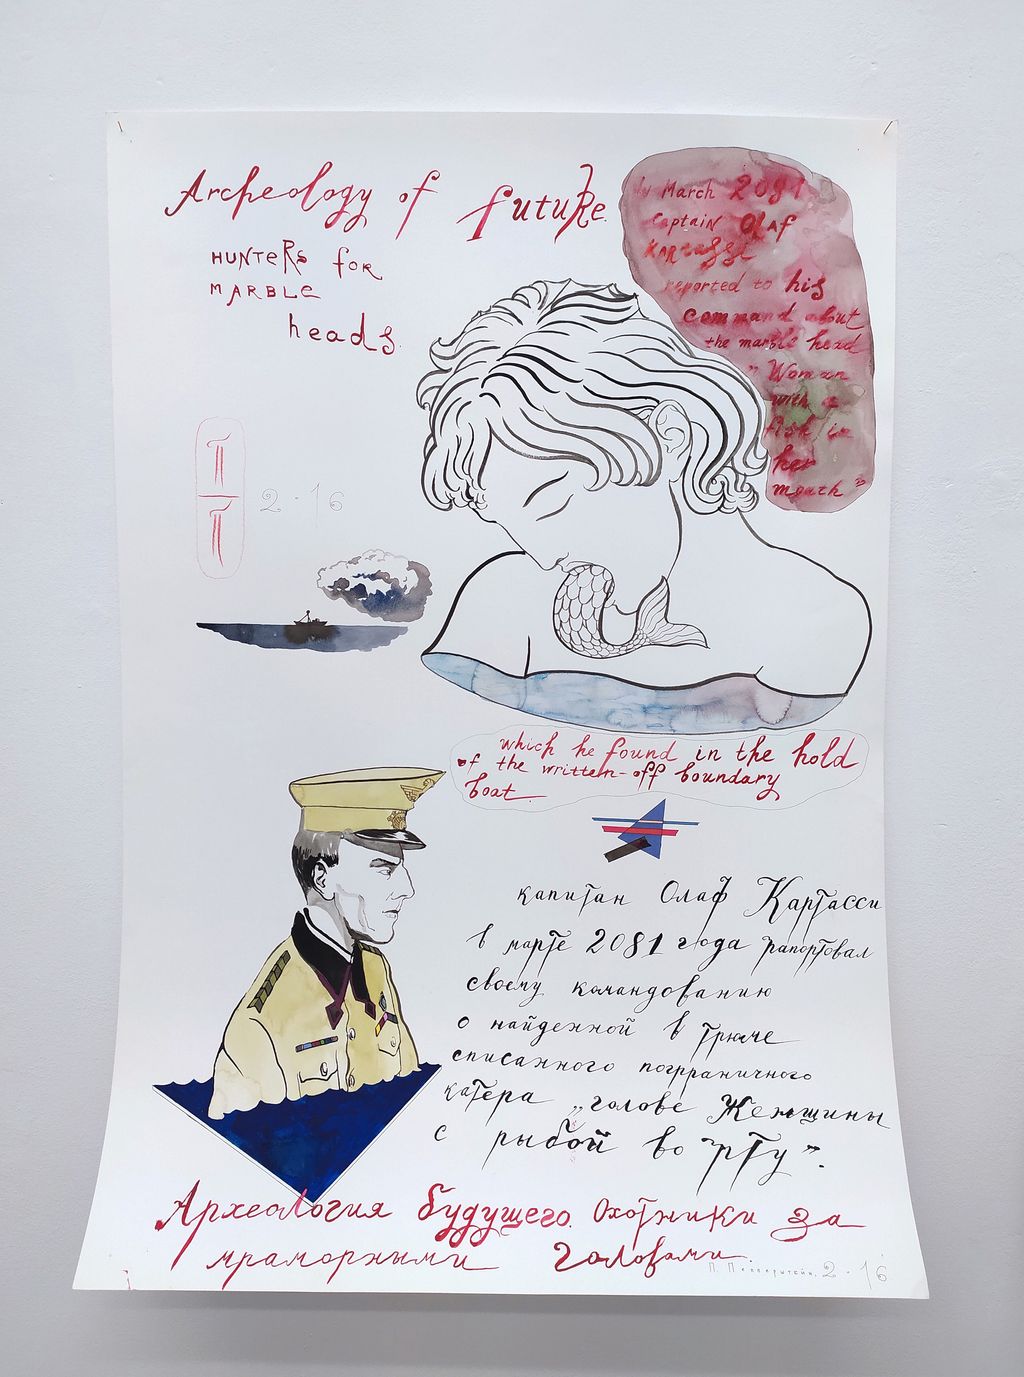 Archeology of future
HUNTERS FOR
MARBLE
heads.
In March 2081
Captain Olaf
Kartassi
reported to his
command about
the marble head
"Woman
with a
fish in
her
mouth"
П
П
2·16
which he found in the hold
of the written-off boundary
boat.
капитан Олаф Картасси
в марте 2081 года рапортовал
своему командованию
о найденной в трюме
списанного пограничного
катера „голове Женщины
с рыбой во рту".
Археология будущего. Охотники за
мраморными головами.
П. Пепперштейн, 2·16